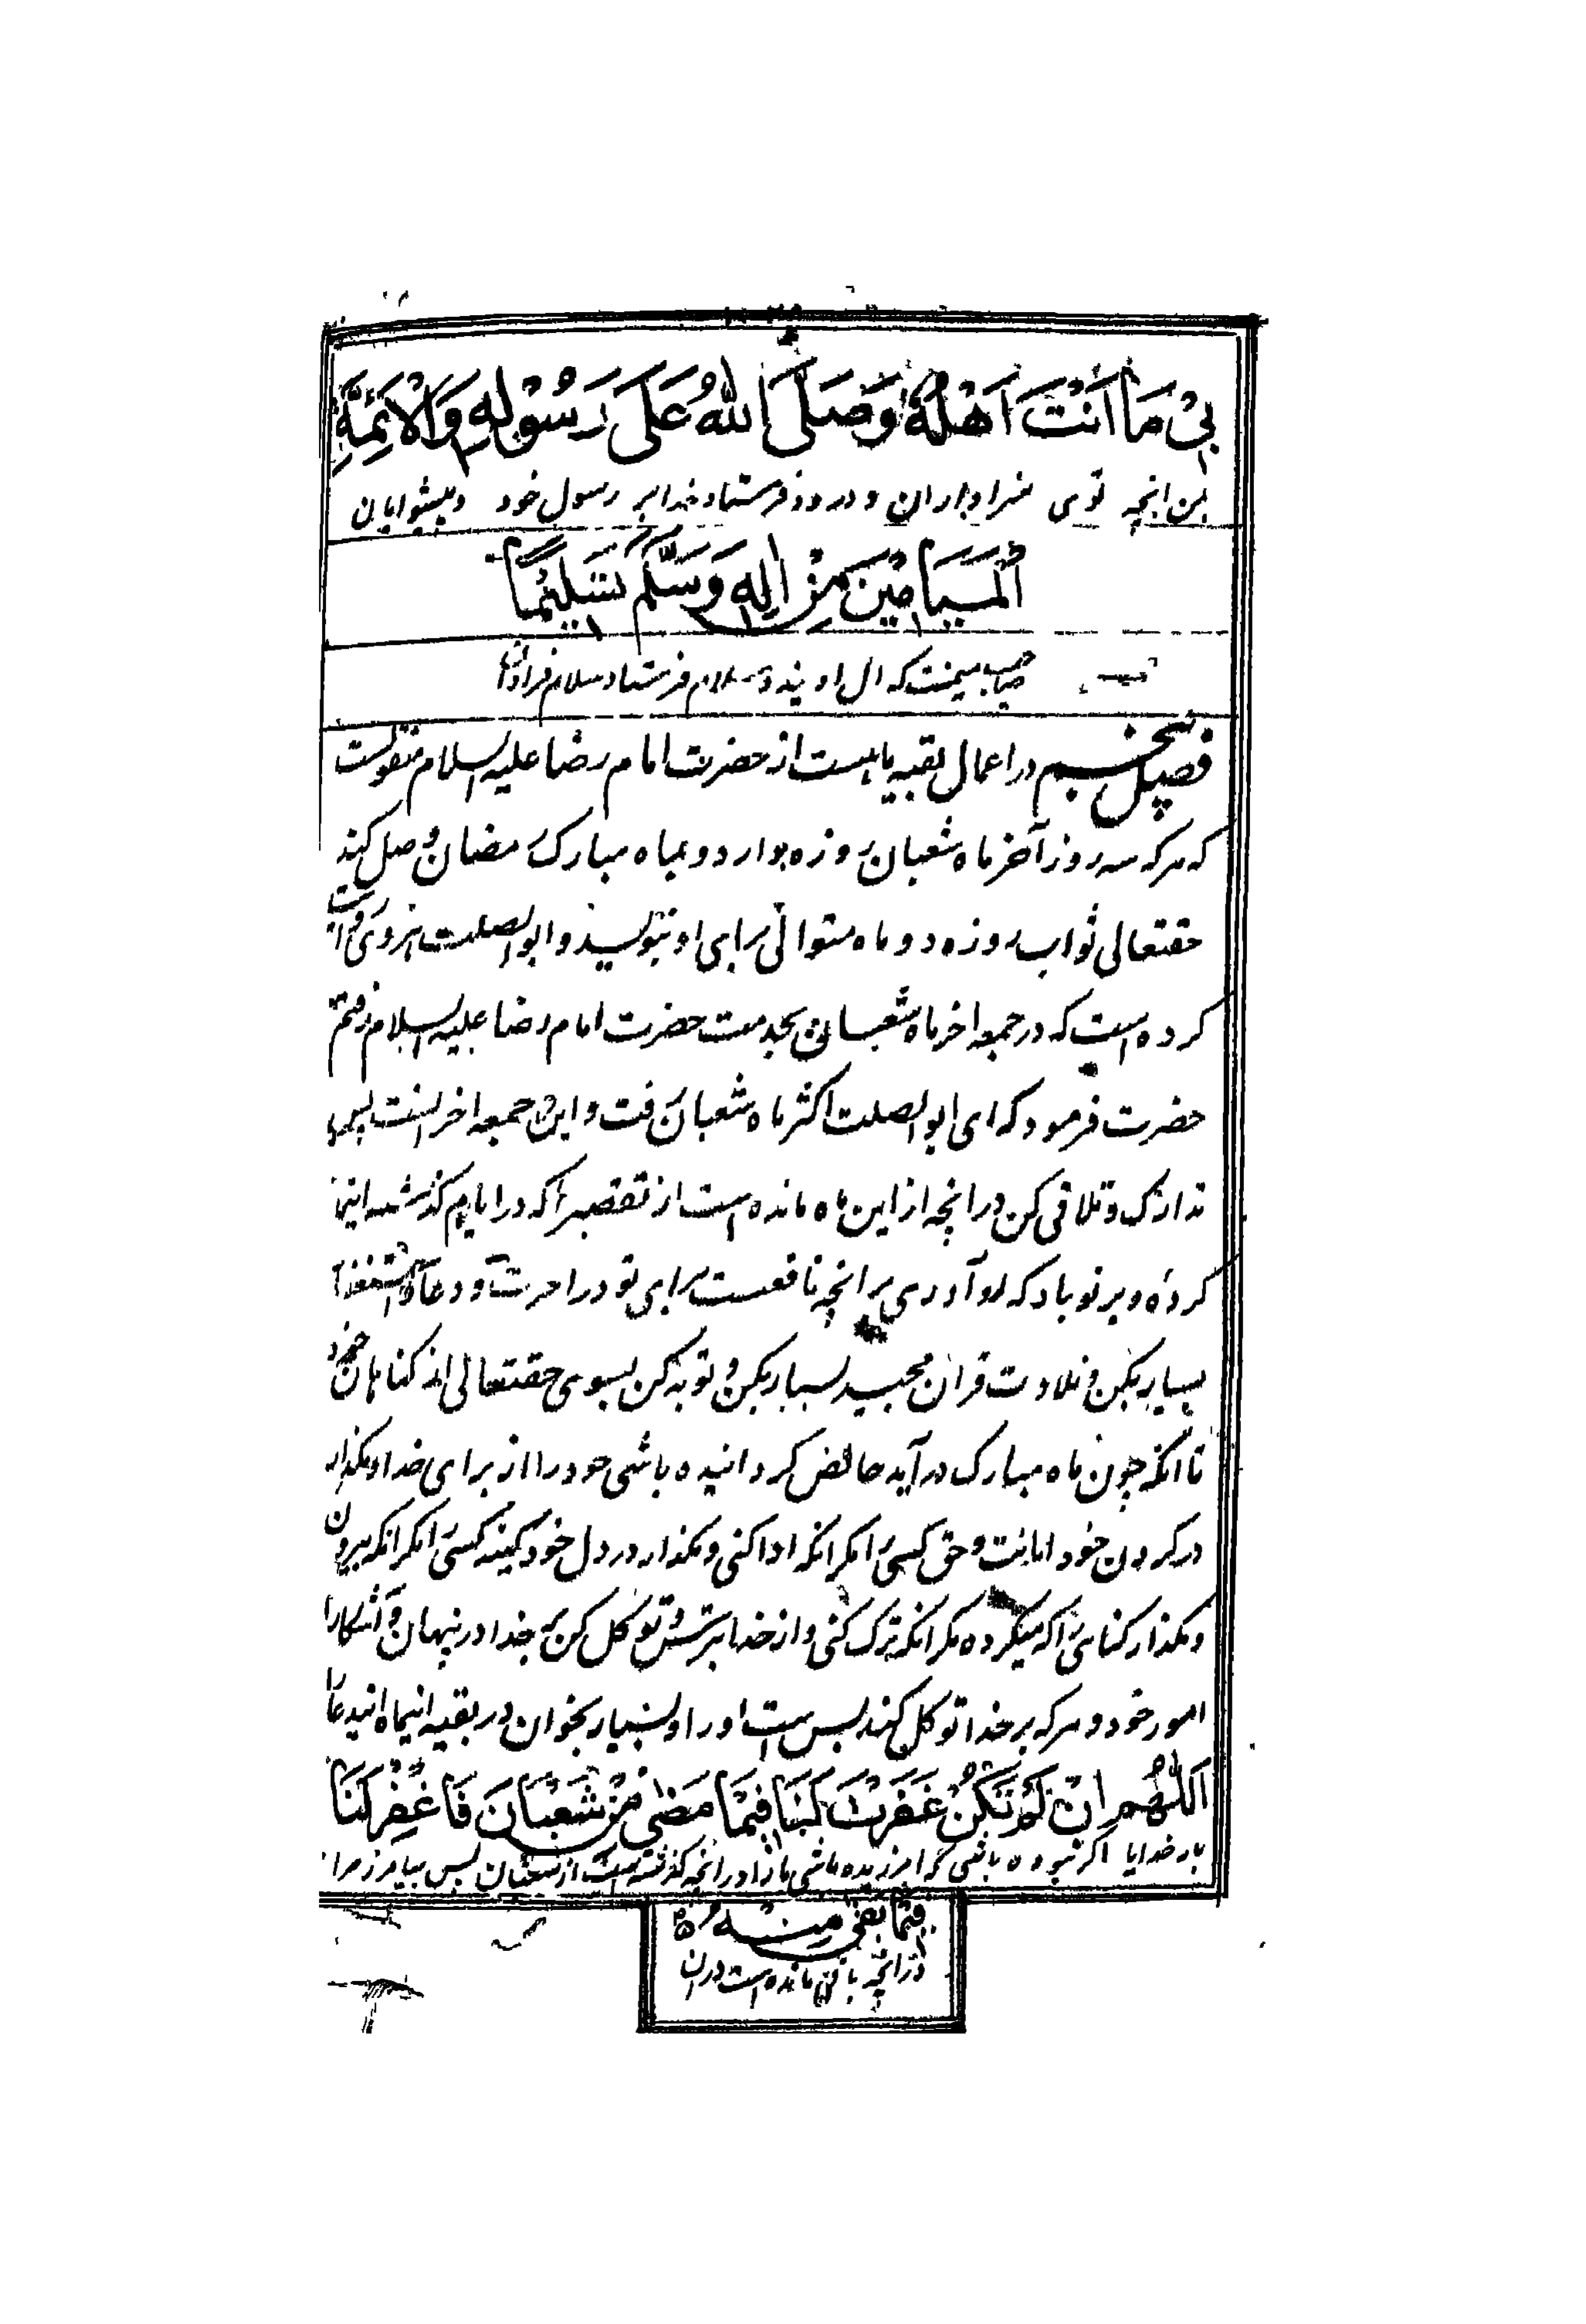 بِيْ مَا اَنْتَ اَهْلُهُ وَصَلَّى اللهُ عَلَى رَسُوْلِهِ وَالْاَئِمَّةِ
بمن انچه توی سزاوار ان و درود فرستاد خدا بر رسول خود و پیشوایان
اَلْمَيَامِيْنَ مِنْ اٰلِهِ وَسَلَّمَ تَسْلِيْمًا
صاحب میمنت که ال اویند و سلام فرستاد سلام فرستادنی
فصل پنجم در اعمال بقیه ماهست از حضرت امام رضا علیه السلام منقولست
که هرکه سه روز آخر ماه شعبان روزه بدارد و بماه مبارک رمضان وصل کند
حقتعالی ثواب روزه دو ماه متوالی برای او بنویسد و ابوالصلت هروی روایت
کرده است که در جمعه اخر ماه شعبان بخدمت حضرت امام رضا علیه السلام رفتم
حضرت فرمود که ای ابوالصلت اکثر ماه شعبان رفت و این جمعه اخر انست پس
تدارک و تلافی کن در انچه از این ماه مانده است از تقصیرها که در ایام گذشته اینماه
کرده و بر تو باد که رو آوری بر انچه نافعست برای تو در اخرت و دعا و استغفار
بسیار بکن و تلاوت قران مجید بسیار بکن و توبه کن بسوی حقتعالی از گناهان خود
تا انکه چون ماه مبارک در آید خالص گردانیده باشی خود را از برای خدا و مگذار
در گردن خود امانت و حق کسی را مگر انکه ادا کنی و مگذار در دل خود کینه کسی را مگر انکه بیرون
و مگذار گناهی را که میکرده مگر انکه ترک کنی و از خدا بترس و توکل کن بر خدا در پنهان و آشکارا
امور خود و هرکه بر خدا توکل کند بس است او را و بسیار بخوان در بقیه اینماه ایندعا را
اَللّٰهُمَّ اِنْ لَمْ تَكُنْ غَفَرْتَ لَنَا فِيْمَا مَضٰى مِنْ شَعْبَانَ فَاغْفِرْ لَنَا
بار خدایا اگر نبوده باشی که امرزیده باشی ما را در انچه گذشته است از شعبان پس بیامرز مرا
فِيْمَا بَقِيَ مِنْهُ
در انچه باقی مانده است در ان